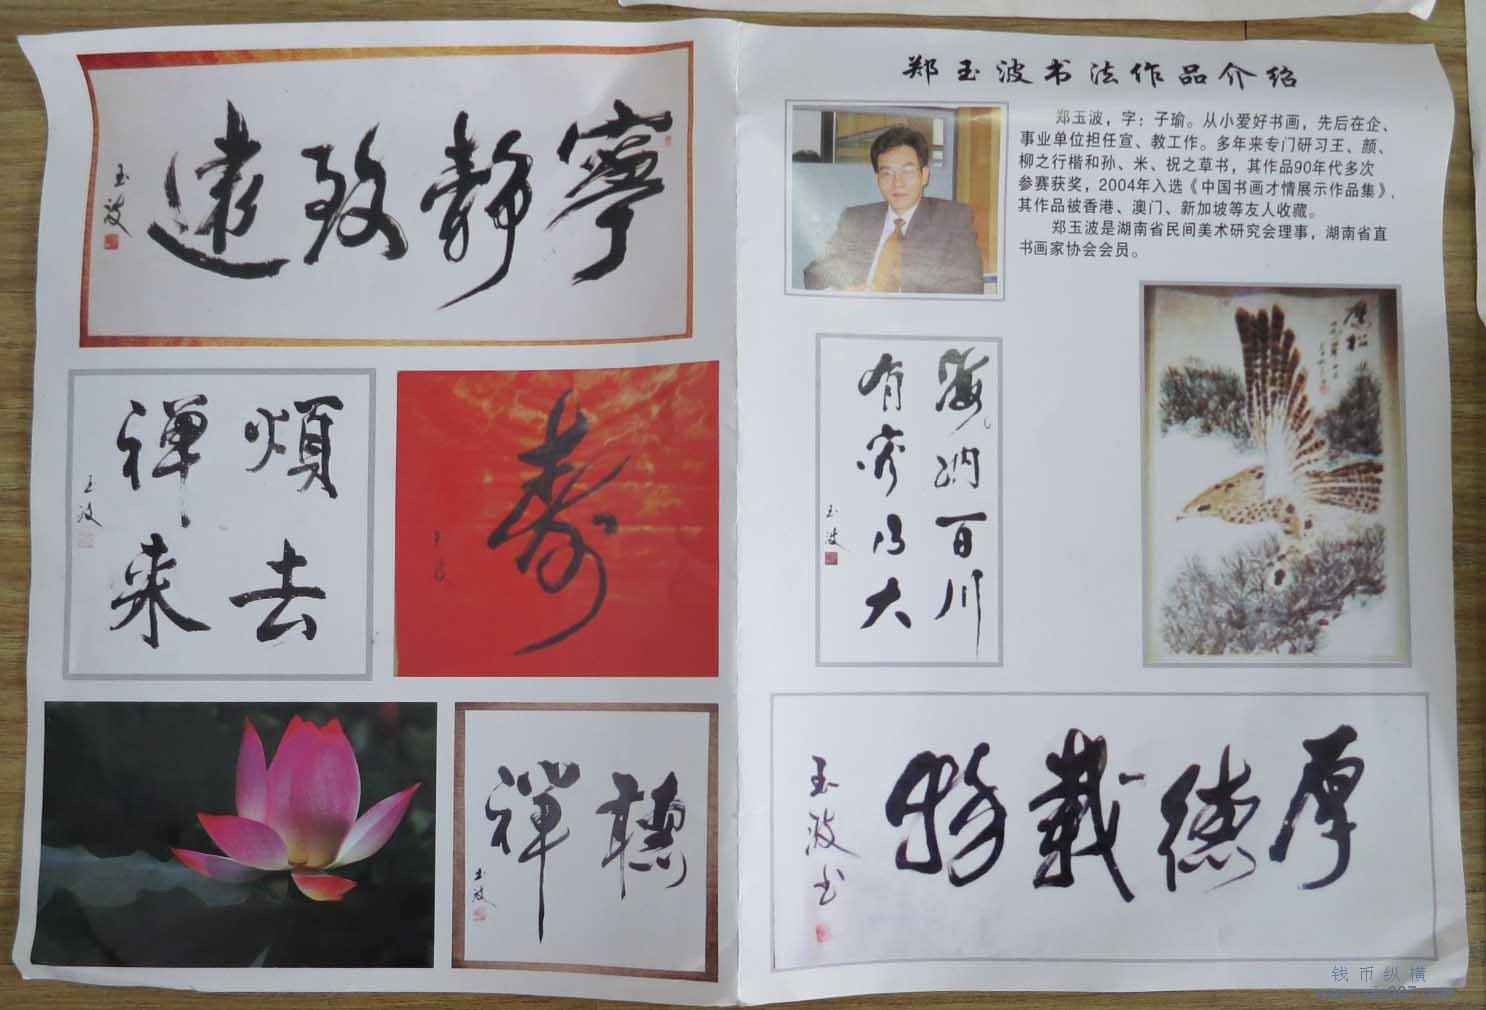 寧靜致遠
玉波
煩去
禅来
玉波
寿
玉波
聽
禅
玉波
郑玉波书法作品介绍
郑玉波，字：子瑜。从小爱好书画，先后在企、
事业单位担任宣、教工作。多年来专门研习王、颜、
柳之行楷和孙、米、祝之草书，其作品90年代多次
参赛获奖，2004年入选《中国书画才情展示作品集》，
其作品被香港、澳门、新加坡等友人收藏。
郑玉波是湖南省民间美术研究会理事，湖南省直
书画家协会会员。
海纳百川
有容乃大
玉波
厚德載物
玉波书
钱币纵横
www.coin007.com